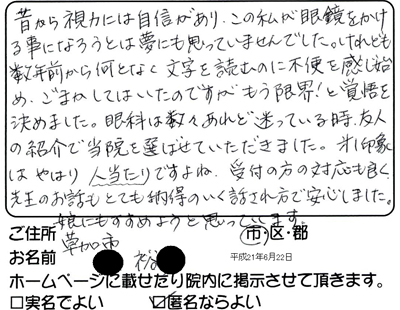 昔から視力には自信があり、この私が眼鏡をかけ
る事になろうとは夢にも思っていませんでした。けれども
数年前から何となく文字を読むのに不便を感じ始
め、ごまかしてはいたのですがもう限界!と覚悟を
決めました。眼科は数々あれど迷っている時、友人
の紹介で当院を選ばせていただきました。才1印象
はやはり人当たりですよね。受付の方の対応も良く、
先生のお話もとても納得のいく話され方で安心しました。
娘にもすすめようと思っています。
ご住所 草加市 市・区・郡
お名前 裕 平成21年6月22日
ホームページに載せたり院内に掲示させて頂きます。
□実名でよい ☑匿名ならよい